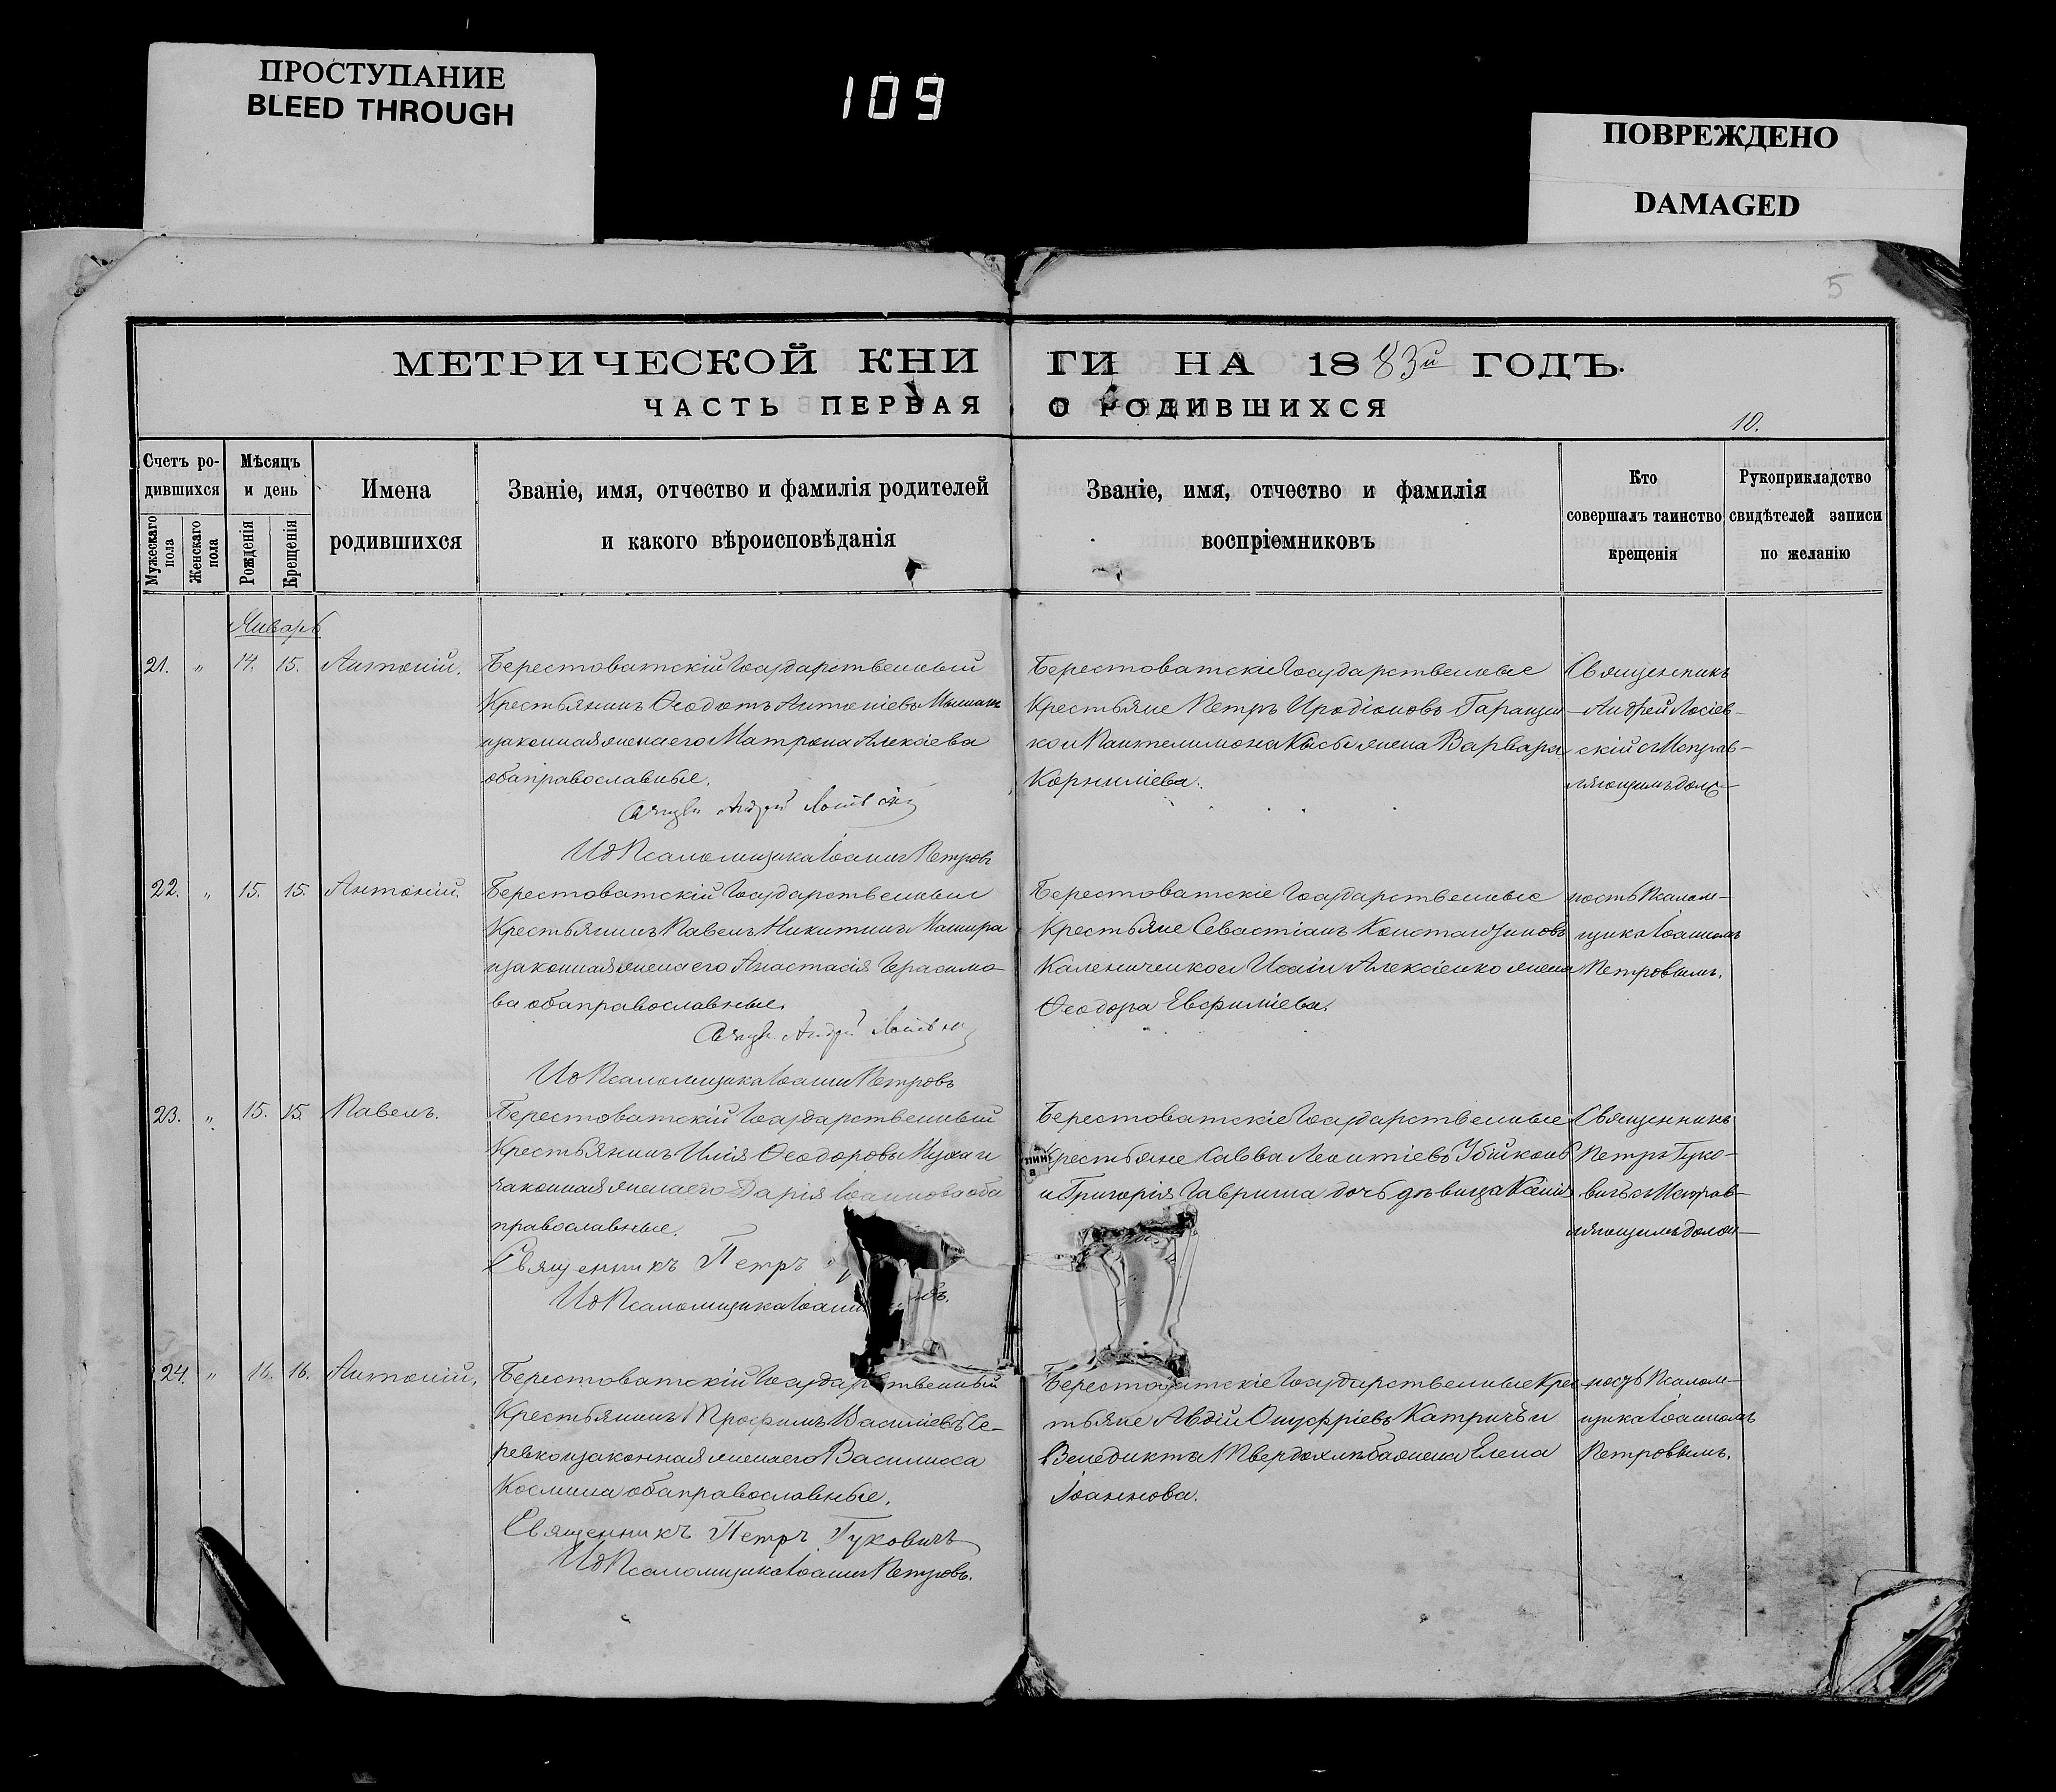 ПРОСТУПАНИЕ
BLEED THROUGH
109
ПОВРЕЖДЕНО
DAMAGED
5
МЕТРИЧЕСКОЙ КНИ ГИ НА 1883й ГОДЪ.
ЧАСТЬ ПЕРВАЯ О РОДИВШИХСЯ
10.
Счетъ ро-
дившихся
Мужескаго пола
Женскаго пола
Мѣсяцъ
и день
Рожденія
Крещенія
Имена
родившихся
Званіе, имя, отчество и фамилія родителей
и какого вѣроисповѣданія
Званіе, имя, отчество и фамилія
воспріемниковъ
Кто
совершалъ таинство
крещенія
Рукоприкладство
свидѣтелей записи
по желанію
Январь
21. " 14. 15. Антоній.
Берестоватскій Государственный
Крестьянинъ Ѳеодотъ Антоніевъ
и законная жена его Матрона Алексіева
оба православные.
Андрей
Ид Псаломщика Іоаннъ Петровъ
Берестоватскіе Государственные
Крестьяне Петръ Иродіоновъ Гаращен-
ко и Пантелимона жена Варвара
Корниліева.
Священникъ
Андрей Лосіев-
скій с Исправ-
ляющимъ долж-
22. " 15. 15. Антоній.
Берестоватскій Государственный
Крестьянинъ Павелъ Никитинъ
и законная жена его Анастасія Герасимо-
ва оба православные.
Андрей
Ид Псаломщика Іоаннъ Петровъ
Берестоватскіе Государственные
Крестьяне Севастіанъ Константиновъ
Калениченко и Исаіи Алексіенко жена
Ѳеодора Евфиміева.
ность Псалом-
щика Іоанномъ
Петровымъ.
23. " 15. 15. Павелъ.
Берестоватскій Государственный
Крестьянинъ Илія Ѳеодоровъ и
законная жена его Дарія Іоаннова оба
православные.
Священникъ Петръ
Ид Псаломщика Іоаннъ
Берестоватскіе Государственные
Крестьяне Савва Леонтіевъ
и Григорія Гавриша дочь дѣвица
Священникъ
Петръ Гуко-
вичъ с Исправ-
ляющимъ долж-
24. " 16. 16. Антоній.
Берестоватскій Государственный
Крестьянинъ Трофимъ Василіевъ Че-
ревко и законная жена его Василисса
Космина оба православные.
Священникъ Петръ Гуковичъ
Ид Псаломщика Іоаннъ Петровъ.
Берестоватскіе Государственные Крес-
тьяне Авдій Онуфріевъ Катричъ и
Венедикта Твердохлѣба жена Елена
Іоаннова.
ность Псалом-
щика Іоанномъ
Петровымъ.